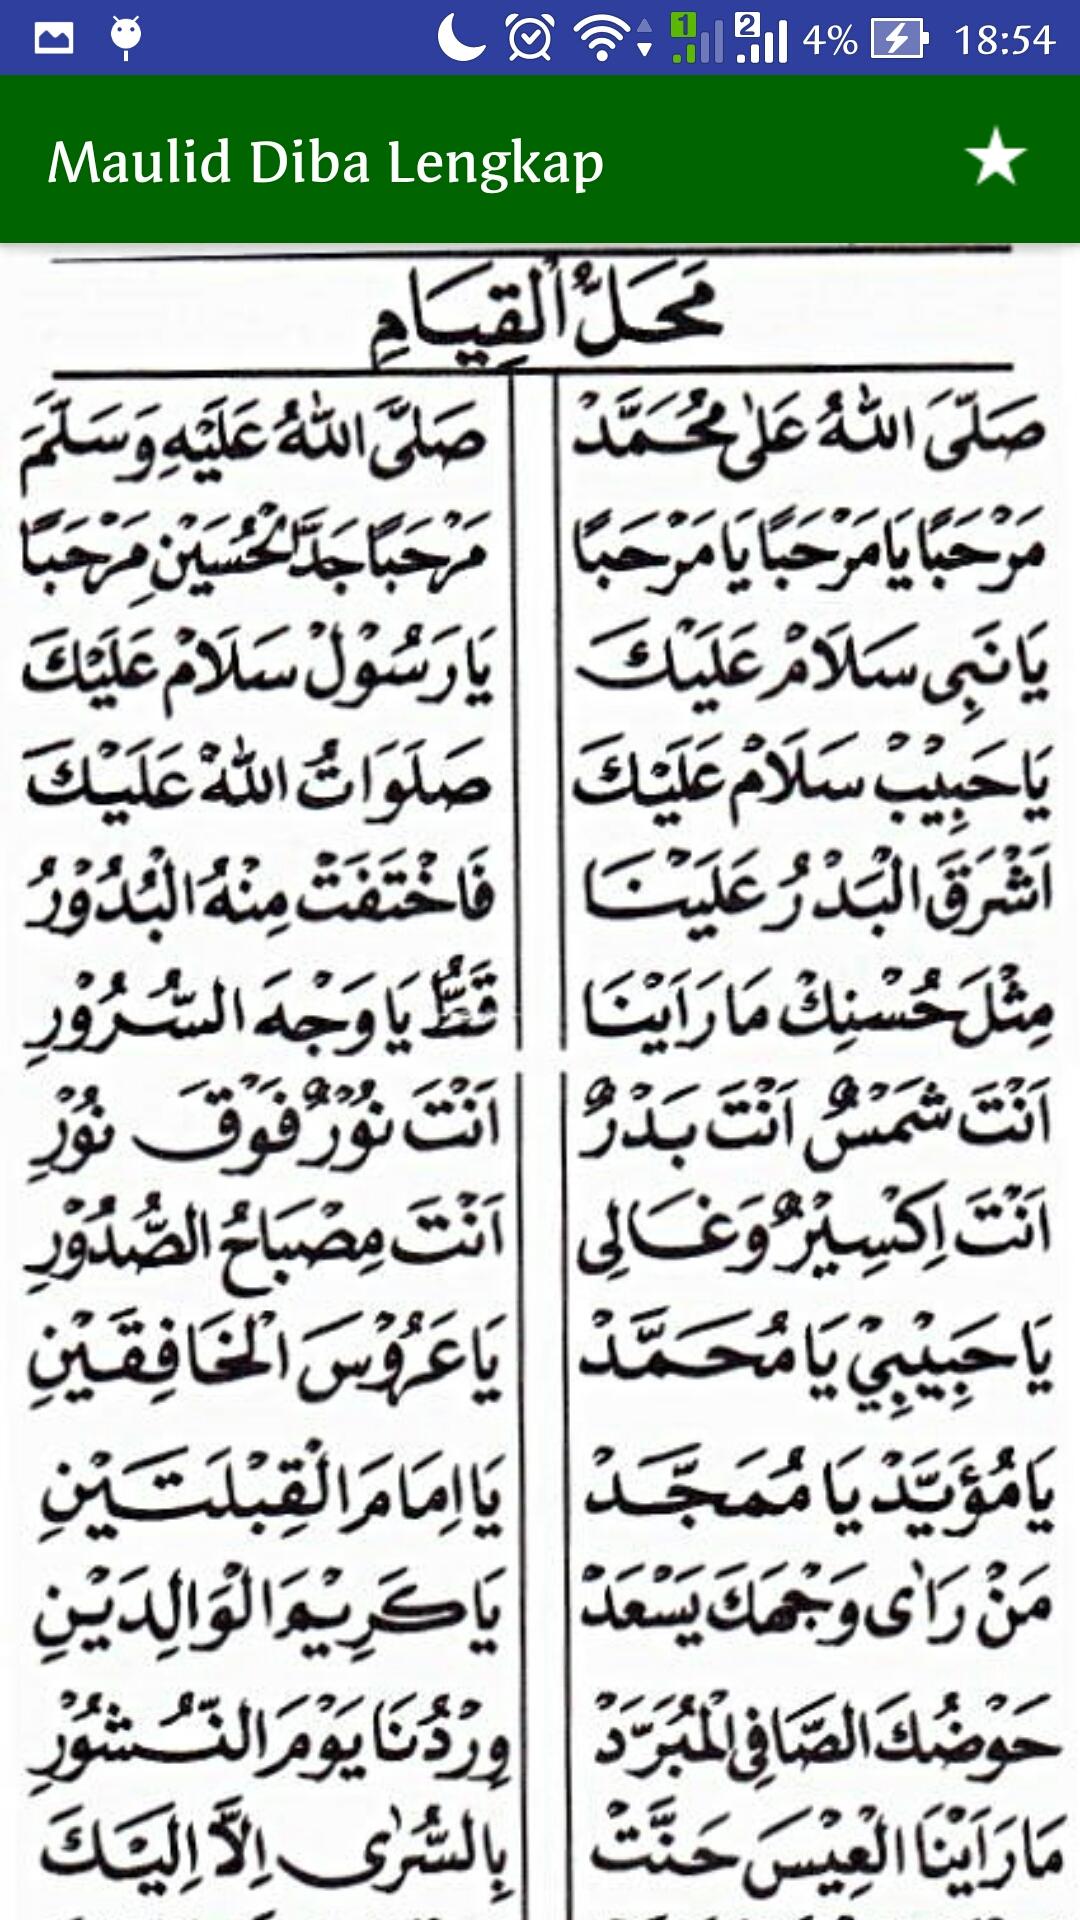 1 2 4% 18:54
Maulid Diba Lengkap
مَحَلُّ الْقِيَامِ
صَلَّى اللهُ عَلٰى مُحَمَّدْ صَلَّى اللهُ عَلَيْهِ وَسَلَّمَ
مَرْحَبًا يَا مَرْحَبًا يَا مَرْحَبًا مَرْحَبًا جَدَّ الْحُسَيْنِ مَرْحَبًا
يَا نَبِى سَلَامْ عَلَيْكَ يَا رَسُوْلْ سَلَامْ عَلَيْكَ
يَا حَبِيْبْ سَلَامْ عَلَيْكَ صَلَوَاتُ اللهْ عَلَيْكَ
اَشْرَقَ الْبَدْرُ عَلَيْنَا فَاخْتَفَتْ مِنْهُ الْبُدُوْرُ
مِثْلَ حُسْنِكْ مَا رَاَيْنَا قَطُّ يَا وَجْهَ السُّرُوْرِ
اَنْتَ شَمْسٌ اَنْتَ بَدْرٌ اَنْتَ نُوْرٌ فَوْقَ نُوْرِ
اَنْتَ اِكْسِيْرٌ وَغَالِى اَنْتَ مِصْبَاحُ الصُّدُوْرِ
يَا حَبِيْبِيْ يَا مُحَمَّدْ يَا عَرُوْسَ الْخَافِقَيْنِ
يَا مُؤَيَّدْ يَا مُمَجَّدْ يَا اِمَامَ الْقِبْلَتَيْنِ
مَنْ رَاٰى وَجْهَكَ يَسْعَدْ يَا كَرِيْمَ الْوَالِدَيْنِ
حَوْضُكَ الصَّافِى الْمُبَرَّدْ وِرْدُنَا يَوْمَ النُّشُوْرِ
مَا رَاَيْنَا الْعِيْسَ حَنَّتْ بِالسُّرٰى اِلَّا اِلَيْكَ